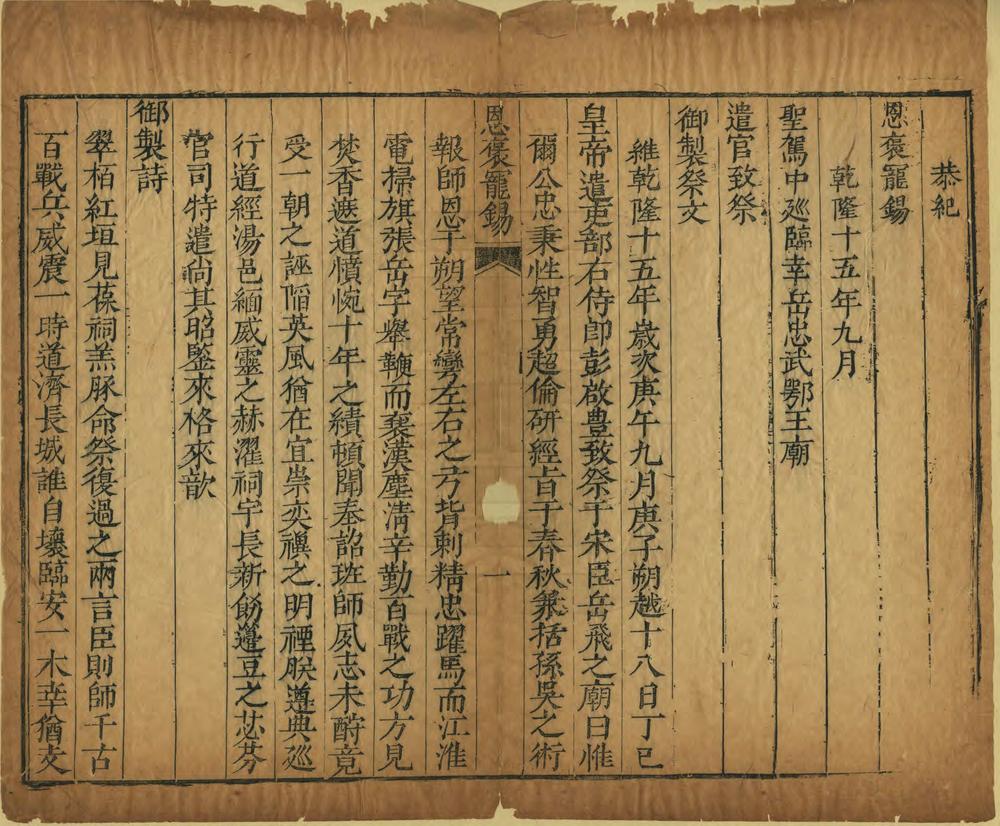 恭紀
恩褒寵錫
乾隆十五年九月
聖駕中廵臨幸岳忠武鄂王廟
遣官致祭
御製祭文
維乾隆十五年歲次庚午九月庚子朔越十八日丁巳
皇帝遣吏部右侍郎彭啟豊致祭于宋臣岳飛之廟曰惟
爾公忠秉性智勇超倫研經旨于春秋兼括孫吳之術
恩褒寵錫
一
報師恩于朔望常彎左右之弓背刺精忠躍馬而江淮
電掃旗張岳字舉鞭而襄漢塵清辛勤百戰之功方見
焚香遮道憤惋十年之績頓聞奉詔班師夙志未酧竟
受一朝之誣陷英風猶在宜崇奕禩之明禋朕遵典廵
行道經湯邑緬威靈之赫濯祠宇長新飭籩豆之苾芬
官司特遣尚其昭鑒來格來歆
御製詩
翠栢紅垣見葆祠羔豚命祭復過之兩言臣則師千古
百戰兵威震一時道濟長城誰自壞臨安一木幸猶支